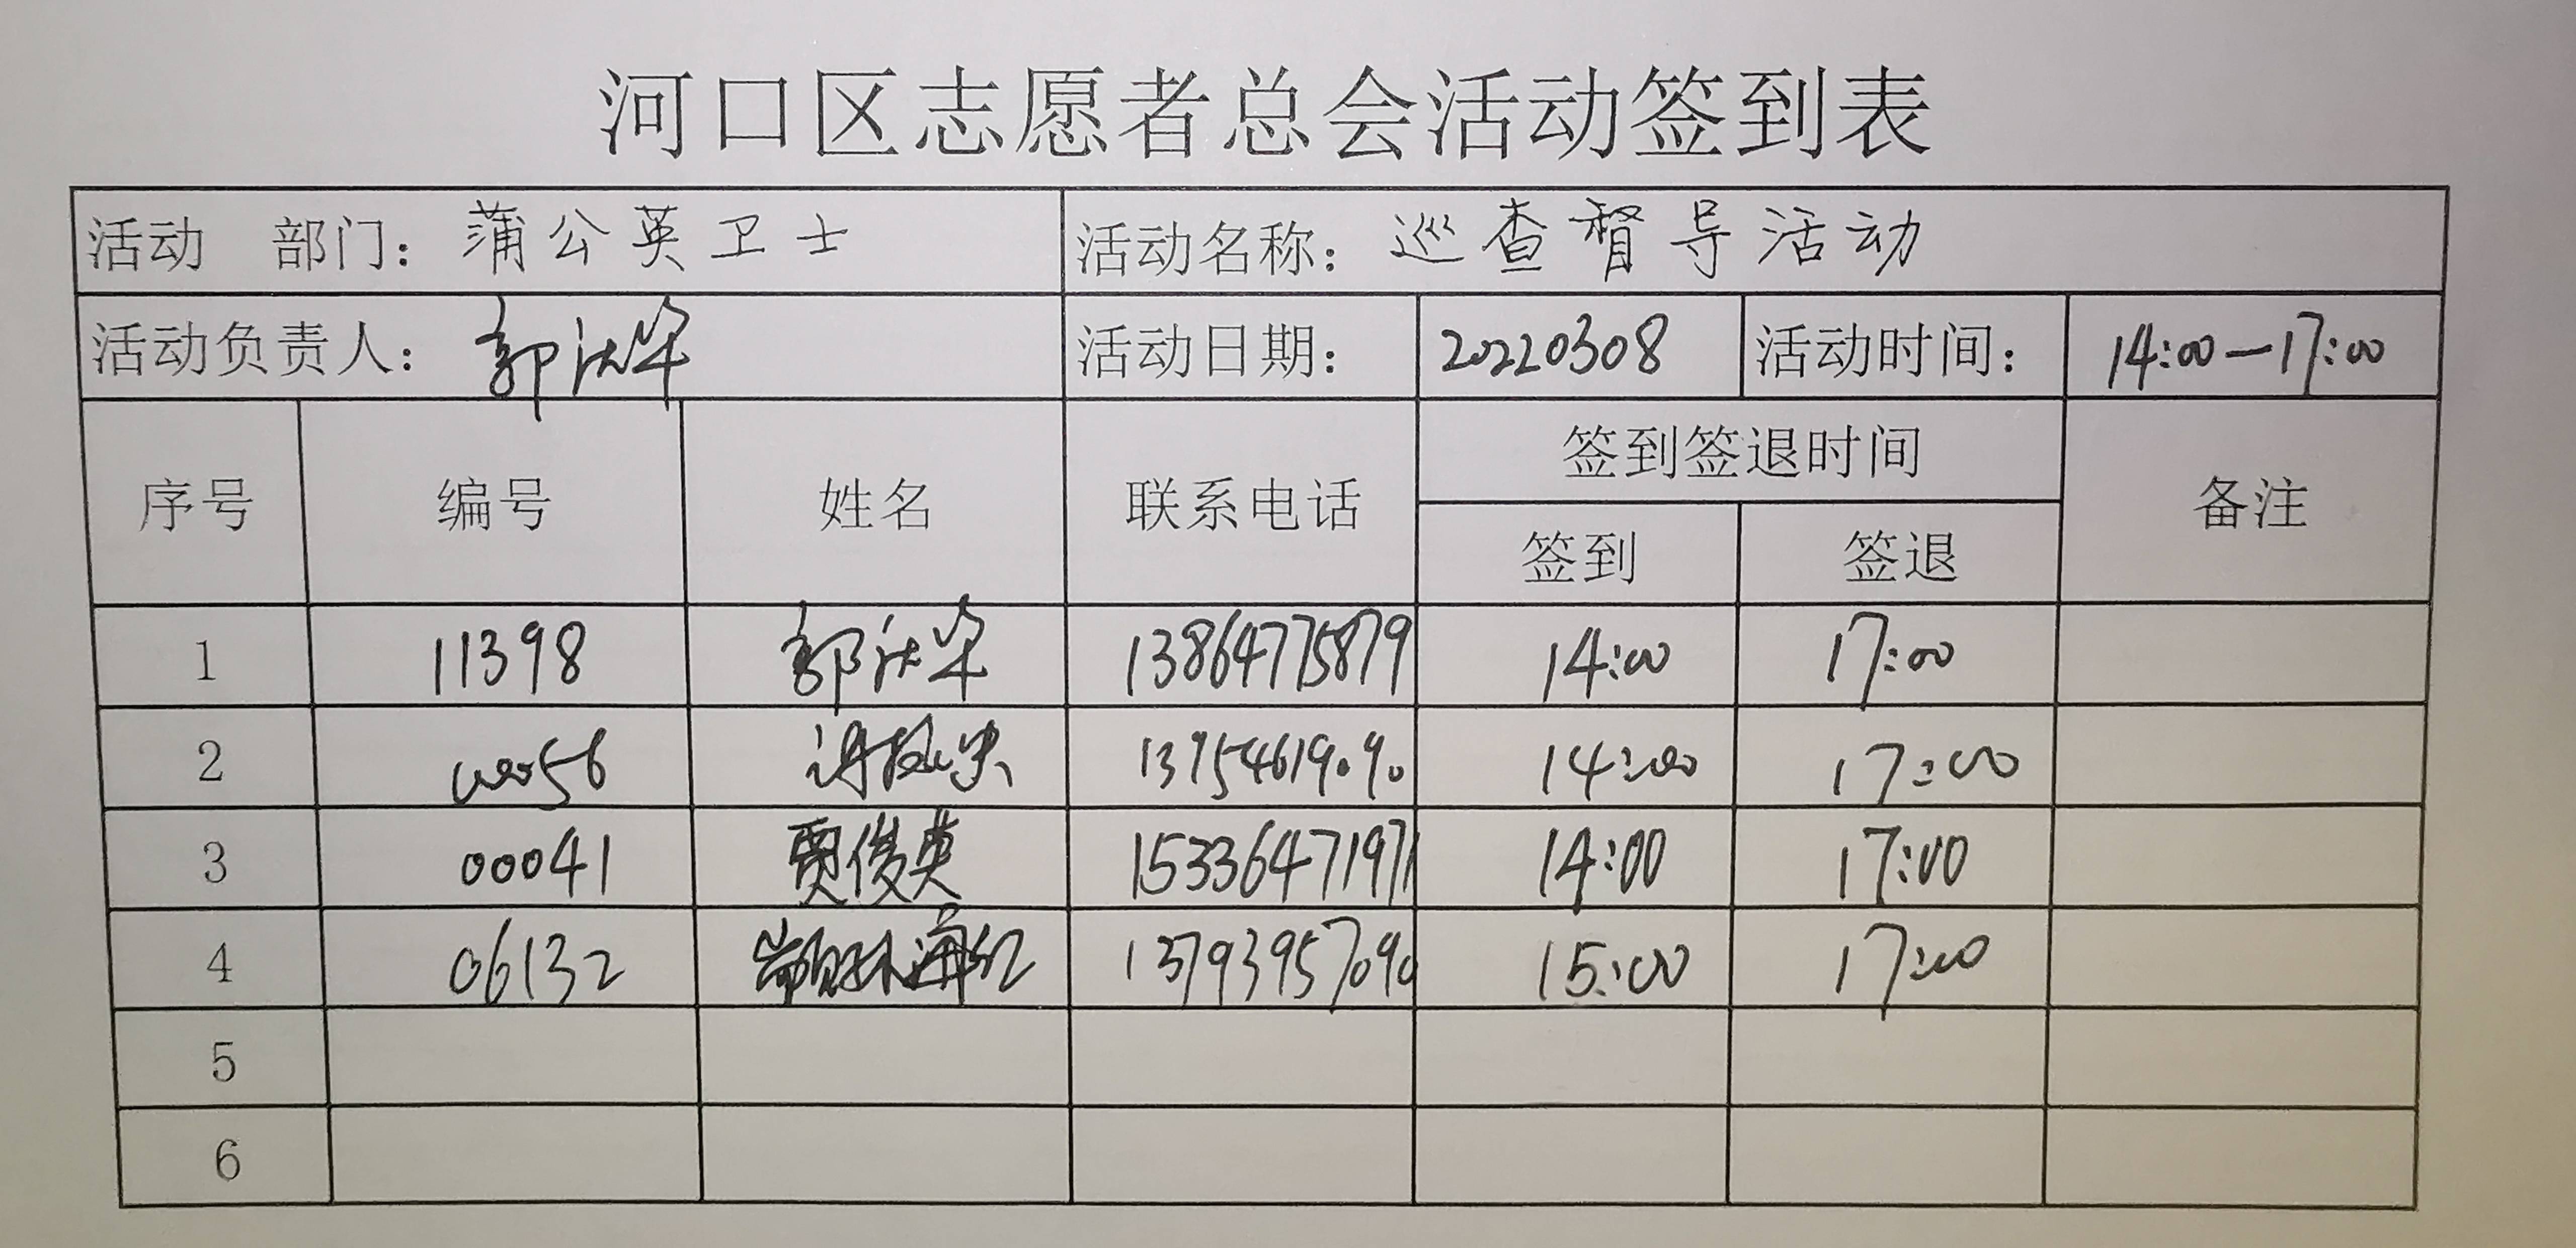 河口区志愿者总会活动签到表
活动 部门：蒲公英卫士 活动名称：巡查督导活动
活动负责人：郭 活动日期：20220308 活动时间：14:00—17:00
序号 编号 姓名 联系电话 签到签退时间 备注
签到 签退
1 11398 郭 13864775879 14:00 17:00
2 00056 13954619090 14:00 17:00
3 00041 贾俊英 15336471971 14:00 17:00
4 06132 海红 13793957090 15:00 17:00
5
6